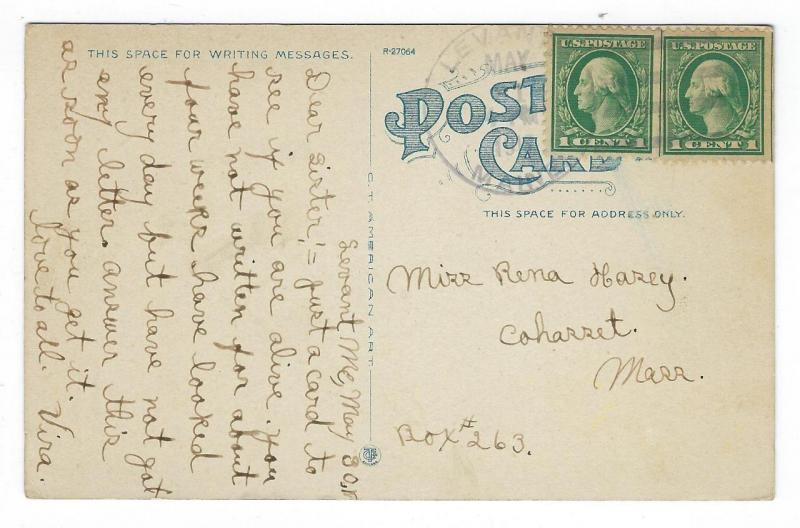 THIS SPACE FOR WRITING MESSAGES.
R-27064
POST
CARD
THIS SPACE FOR ADDRESS ONLY.
U.S. POSTAGE
1 CENT 1
U.S. POSTAGE
1 CENT 1
LEVAN
MAY
MAINE
C. T. AMERICAN ART
Levant Me, May 30,
Dear Sister:= just a card to
see if you are alive. you
have not written for about
four weeks have looked
every day but have not got
any letter. answer this
as soon as you get it.
love to all. Vira.
Miss Rena Hasey.
Cohasset.
Mass.
Box #263.